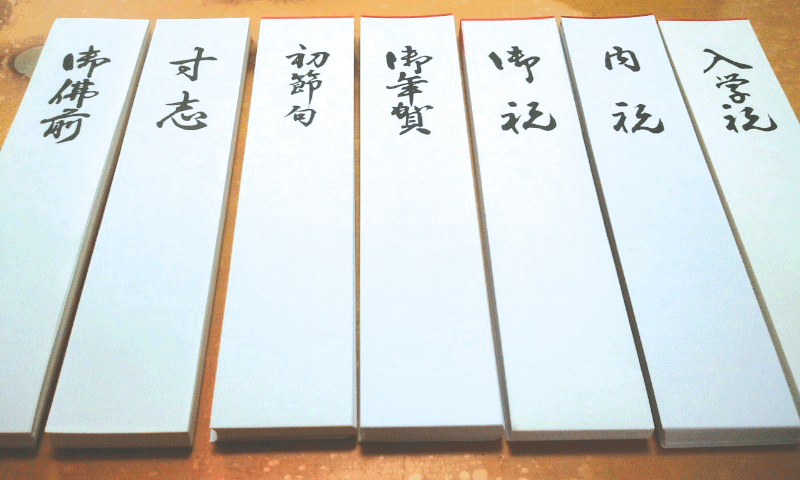 御佛前
寸志
初節句
御年賀
御祝
内祝
入学祝